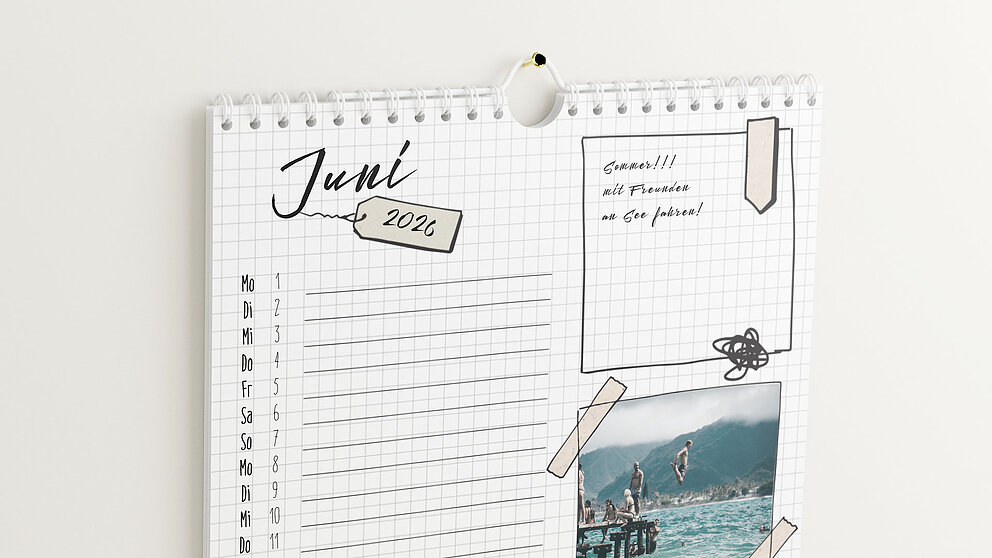 Juni
2026
Sommer!!!
mit Freunden
an See fahren!
Mo 1
Di 2
Mi 3
Do 4
Fr 5
Sa 6
So 7
Mo 8
Di 9
Mi 10
Do 11